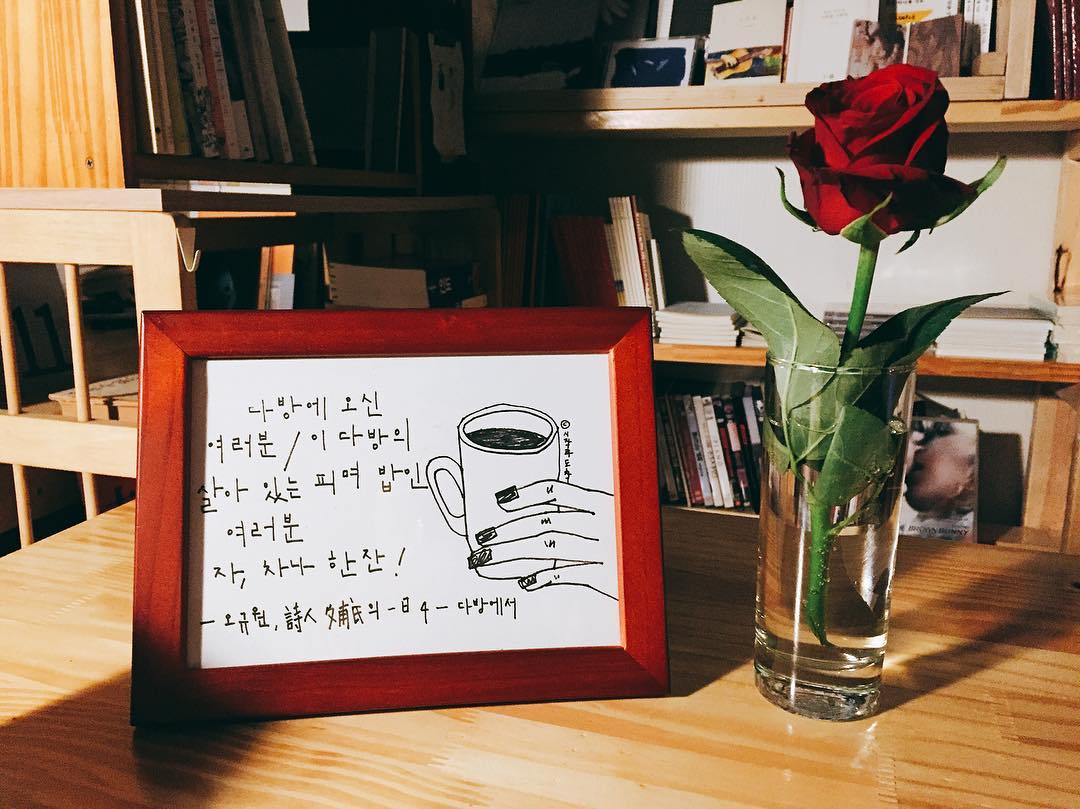 다방에 오신
여러분 / 이 다방의
살아 있는 피며 밥인
여러분
자, 차나 한잔!
- 오규원, 詩人 久甫氏의 一日 4 - 다방에서